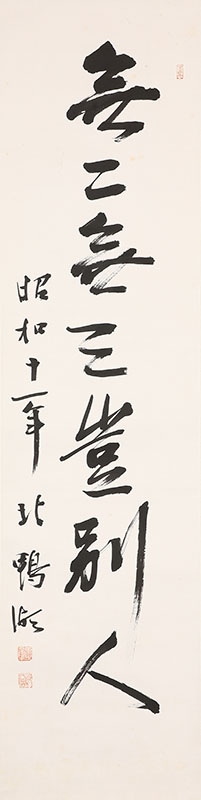 無二無三豈別人
昭和十一年 鴨